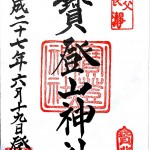 父
長瀞
寶登山神社
成二十七年六月十九日登